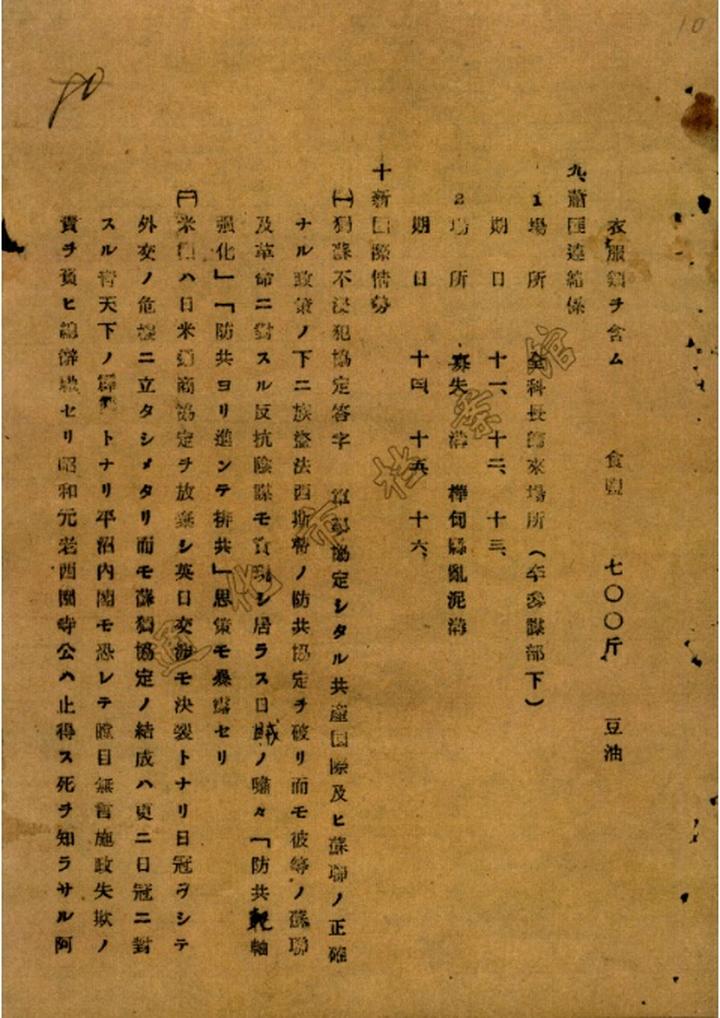 10
衣服類ヲ含ム　食塩　七〇〇斤　豆油
九、蕭匪連絡係
1 場所　全科長歸來場所（李參謀部下）
期日　十一、十二、十三、
2 場所　寡失溝　樺甸縣亂泥溝
期日　十四、十五、十六、
十 新国際情勢
㈠獨蘇不浸犯協定答字　軍事協定シタル共産国際及ヒ蘇聯ノ正確
ナル政策ノ下ニ族盗法西斯帝ノ防共協定ヲ破リ而モ彼等ノ蘇聯
及革命ニ對スル反抗陰謀モ實現シ居ラス日賊ノ囈々「防共軸
强化」「防共ヨリ進ンテ排共」思策モ暴露セリ
㈡米国ハ日米通商協定ヲ放棄シ英日交渉モ決裂トナリ日冠ヲシテ
外交ノ危機ニ立タシメタリ而モ蘇獨協定ノ結成ハ更ニ日冠ニ對
スル青天下ノ霹靂トナリ平沼内閣モ恐レテ瞠目無言施政失欺ノ
責ヲ負ヒ總辭職セリ昭和元老西園寺公ハ止得ス死ヲ知ラサル阿
档案館